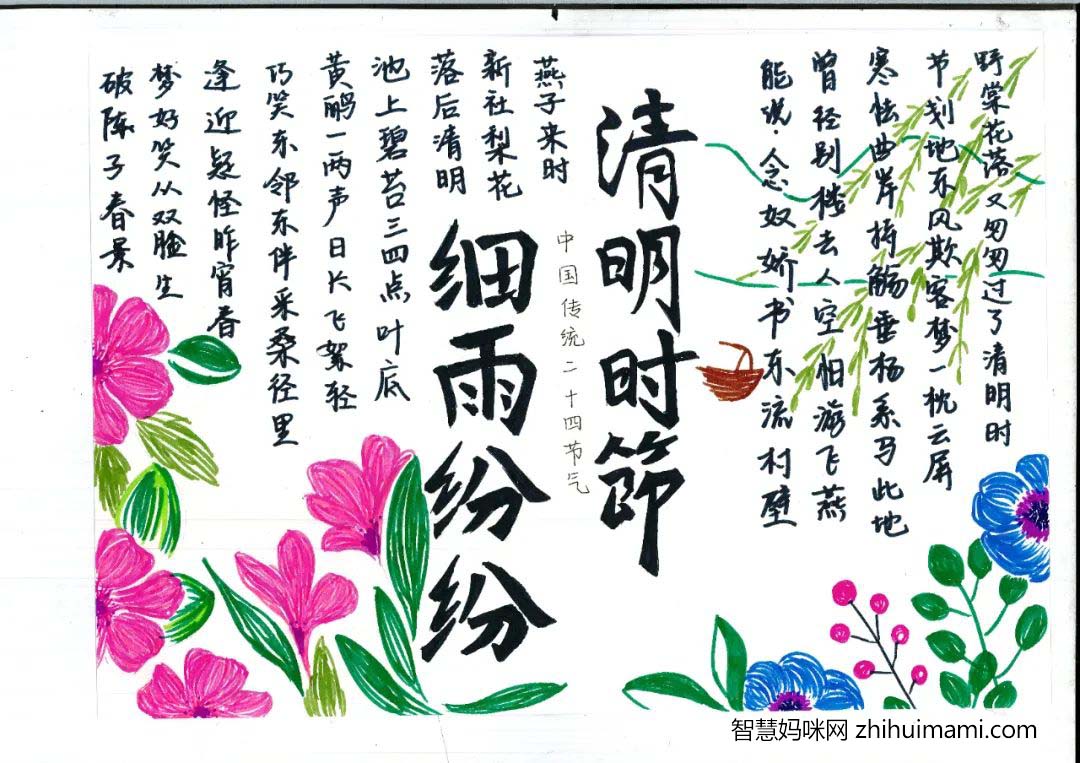 野棠花落又匆匆过了清明时
节划地东风欺客梦一枕云屏
寒怯曲岸持觞垂杨系马此地
曾经别楼去人空怕游飞燕
能说·念奴娇书东流村壁
清明时節
中国传统二十四节气
细雨纷纷
燕子来时
新社梨花
落后清明
池上碧苔三四点叶底
黄鹂一两声日长飞絮轻
巧笑东邻东伴采桑径里
逢迎疑怪昨宵春
梦好笑从双脸生
破陈子春景
智慧妈咪网 zhihuimami.com